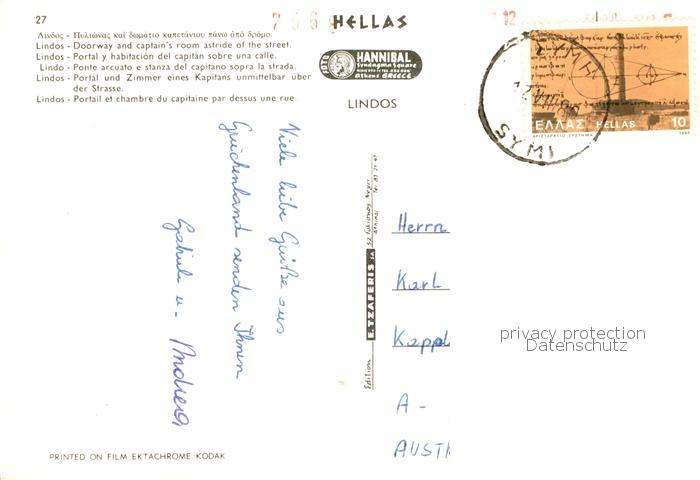 27
7 5 6
HELLAS
12
Λίνδος - Πυλιώνας καί δωμάτιο καπετάνιου πάνω ἀπό δρόμο.
Lindos - Doorway and captain's room astride of the street.
Lindos - Portal y habitación del capitán sobre una calle.
Lindo - Ponte arcuato e stanza del capitano sopra la strada.
Lindos - Portal und Zimmer eines Kapitans unmittelbar über
der Strasse.
Lindos - Portail et chambre du capitaine par dessus une rue.
HANNIBAL
Syndagma Square
Athens Greece
LINDOS
SYMI
ΕΛΛΑΣ HELLAS 10
ΑΡΙΣΤΑΡΧΕΙΟ ΣΥΣΤΗΜΑ 1980
Viele liebe Grüße aus
Griechenland senden Ihnen
Gabriele u. Andreas
Edition E. TZAFERIS SA
Herrn
Karl
Kappl
A -
AUST
privacy protection
Datenschutz
PRINTED ON FILM EKTACHROME KODAK